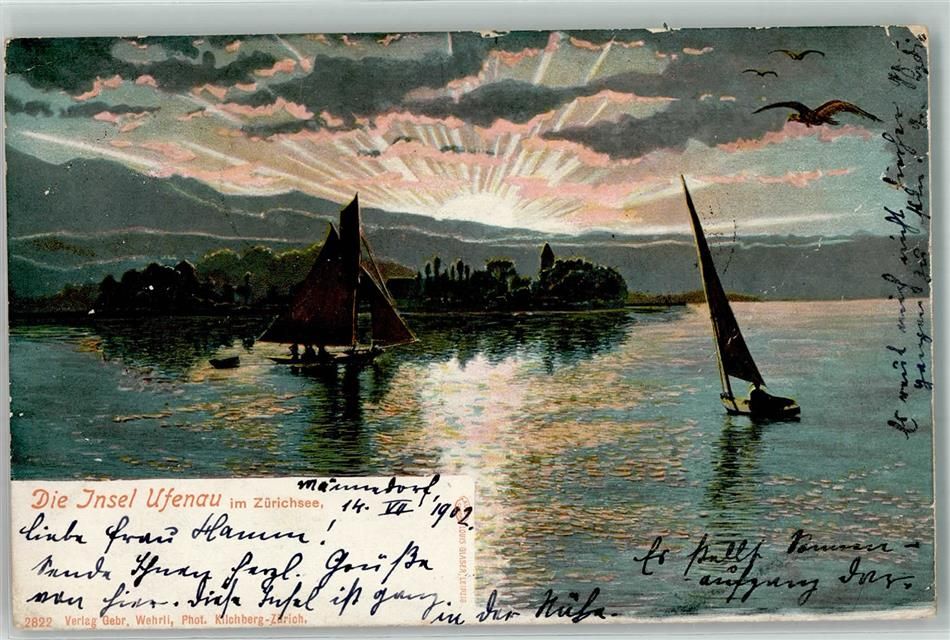 Die Insel Ufenau im Zürichsee,
Männedorf,
14. VII 1902.
Liebe Frau Hamm!
Sende Ihnen herzl. Grüße
von hier. Diese Insel ist ganz
in der Nähe.
Es stellt Sonnen-
aufgang dar.
Es freut mich nicht
ganzen zu
LOUIS GLASER LEIPZIG
2822 Verlag Gebr. Wehrli, Phot. Kilchberg-Zürich.